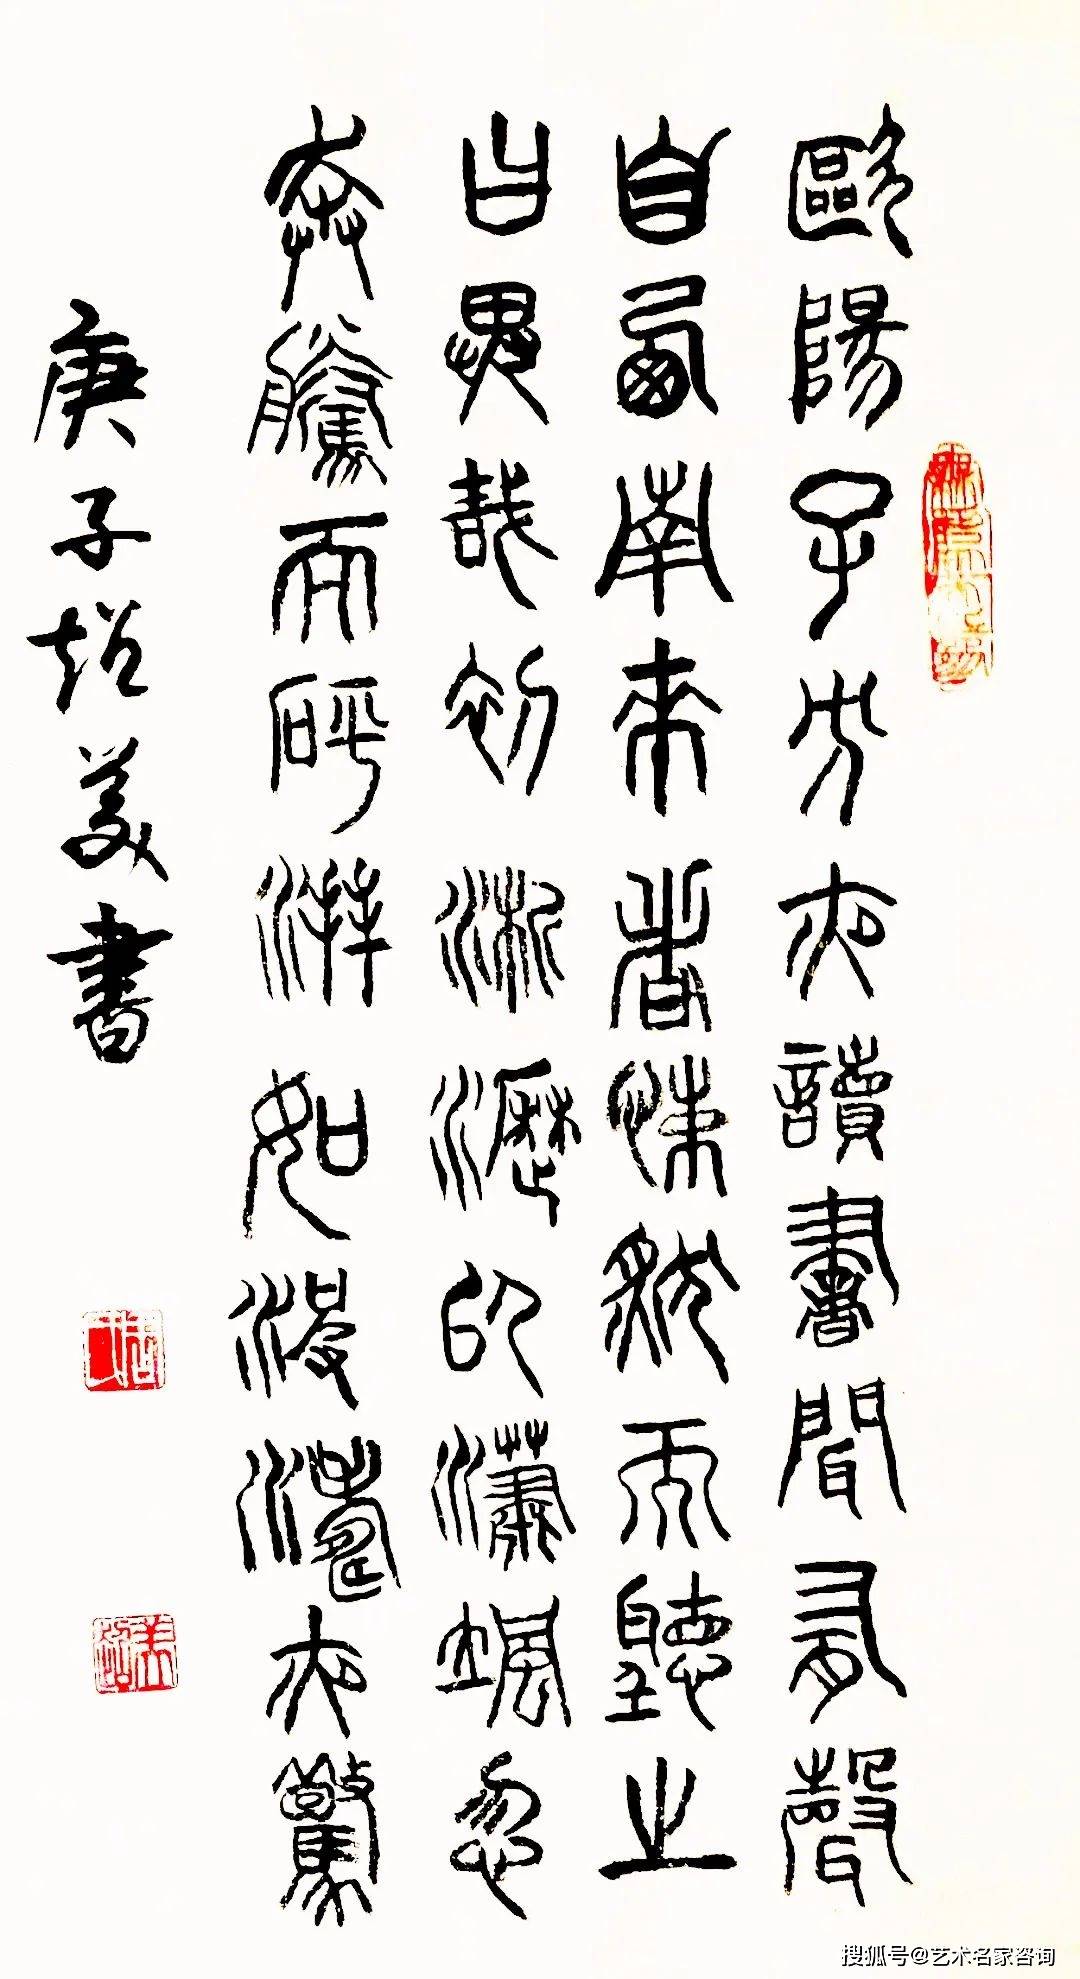 歐陽子方夜讀書聞有聲
自西南來者悚然而聽之
曰異哉初淅瀝以瀟颯忽
奔騰而砰湃如波濤夜驚
庚子超美書
搜狐号@艺术名家咨询